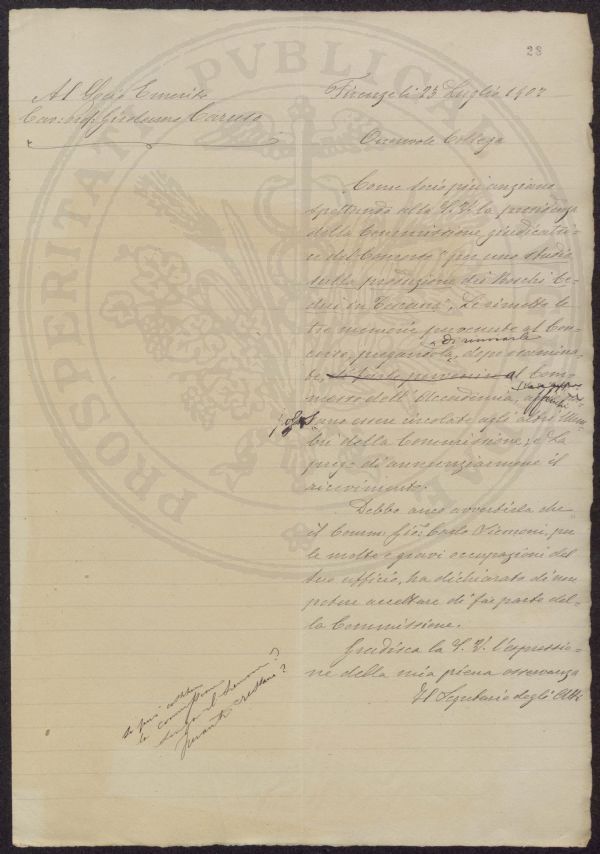 28
Firenze li 23 Luglio 1902
Al Socio Emerito
Cav: Prof: Girolamo Caruso
Onorevole Collega
Come socio più anziano
spettando alla S. V. la presidenza
della Commissione giudicatri-
ce del Concorso "per uno studio
sulla produzione dei Boschi Ce-
dui in Toscana", Le rimetto le
tre memorie pervenute al Con-
corso, pregandola, dopo esamina-
te, di rinviarle
di farle pervenire al Com-
messo dell'Accademia, affinchè
possano esser circolate agli altri Mem-
bri della Commissione; e La
prego di annunziarmene il
ricevimento.
Debbo anco avvertirla che
il Comm. Gio: Carlo Siemoni, per
le molte e gravi occupazioni del
suo ufficio, ha dichiarato di non
potere accettare di far parte del-
la Commissione.
Gradisca la S. V. l'espressio-
ne della mia piena osservanza
Il Segretario degli Atti
la commissione
PROSPERITATI PVBLICAE